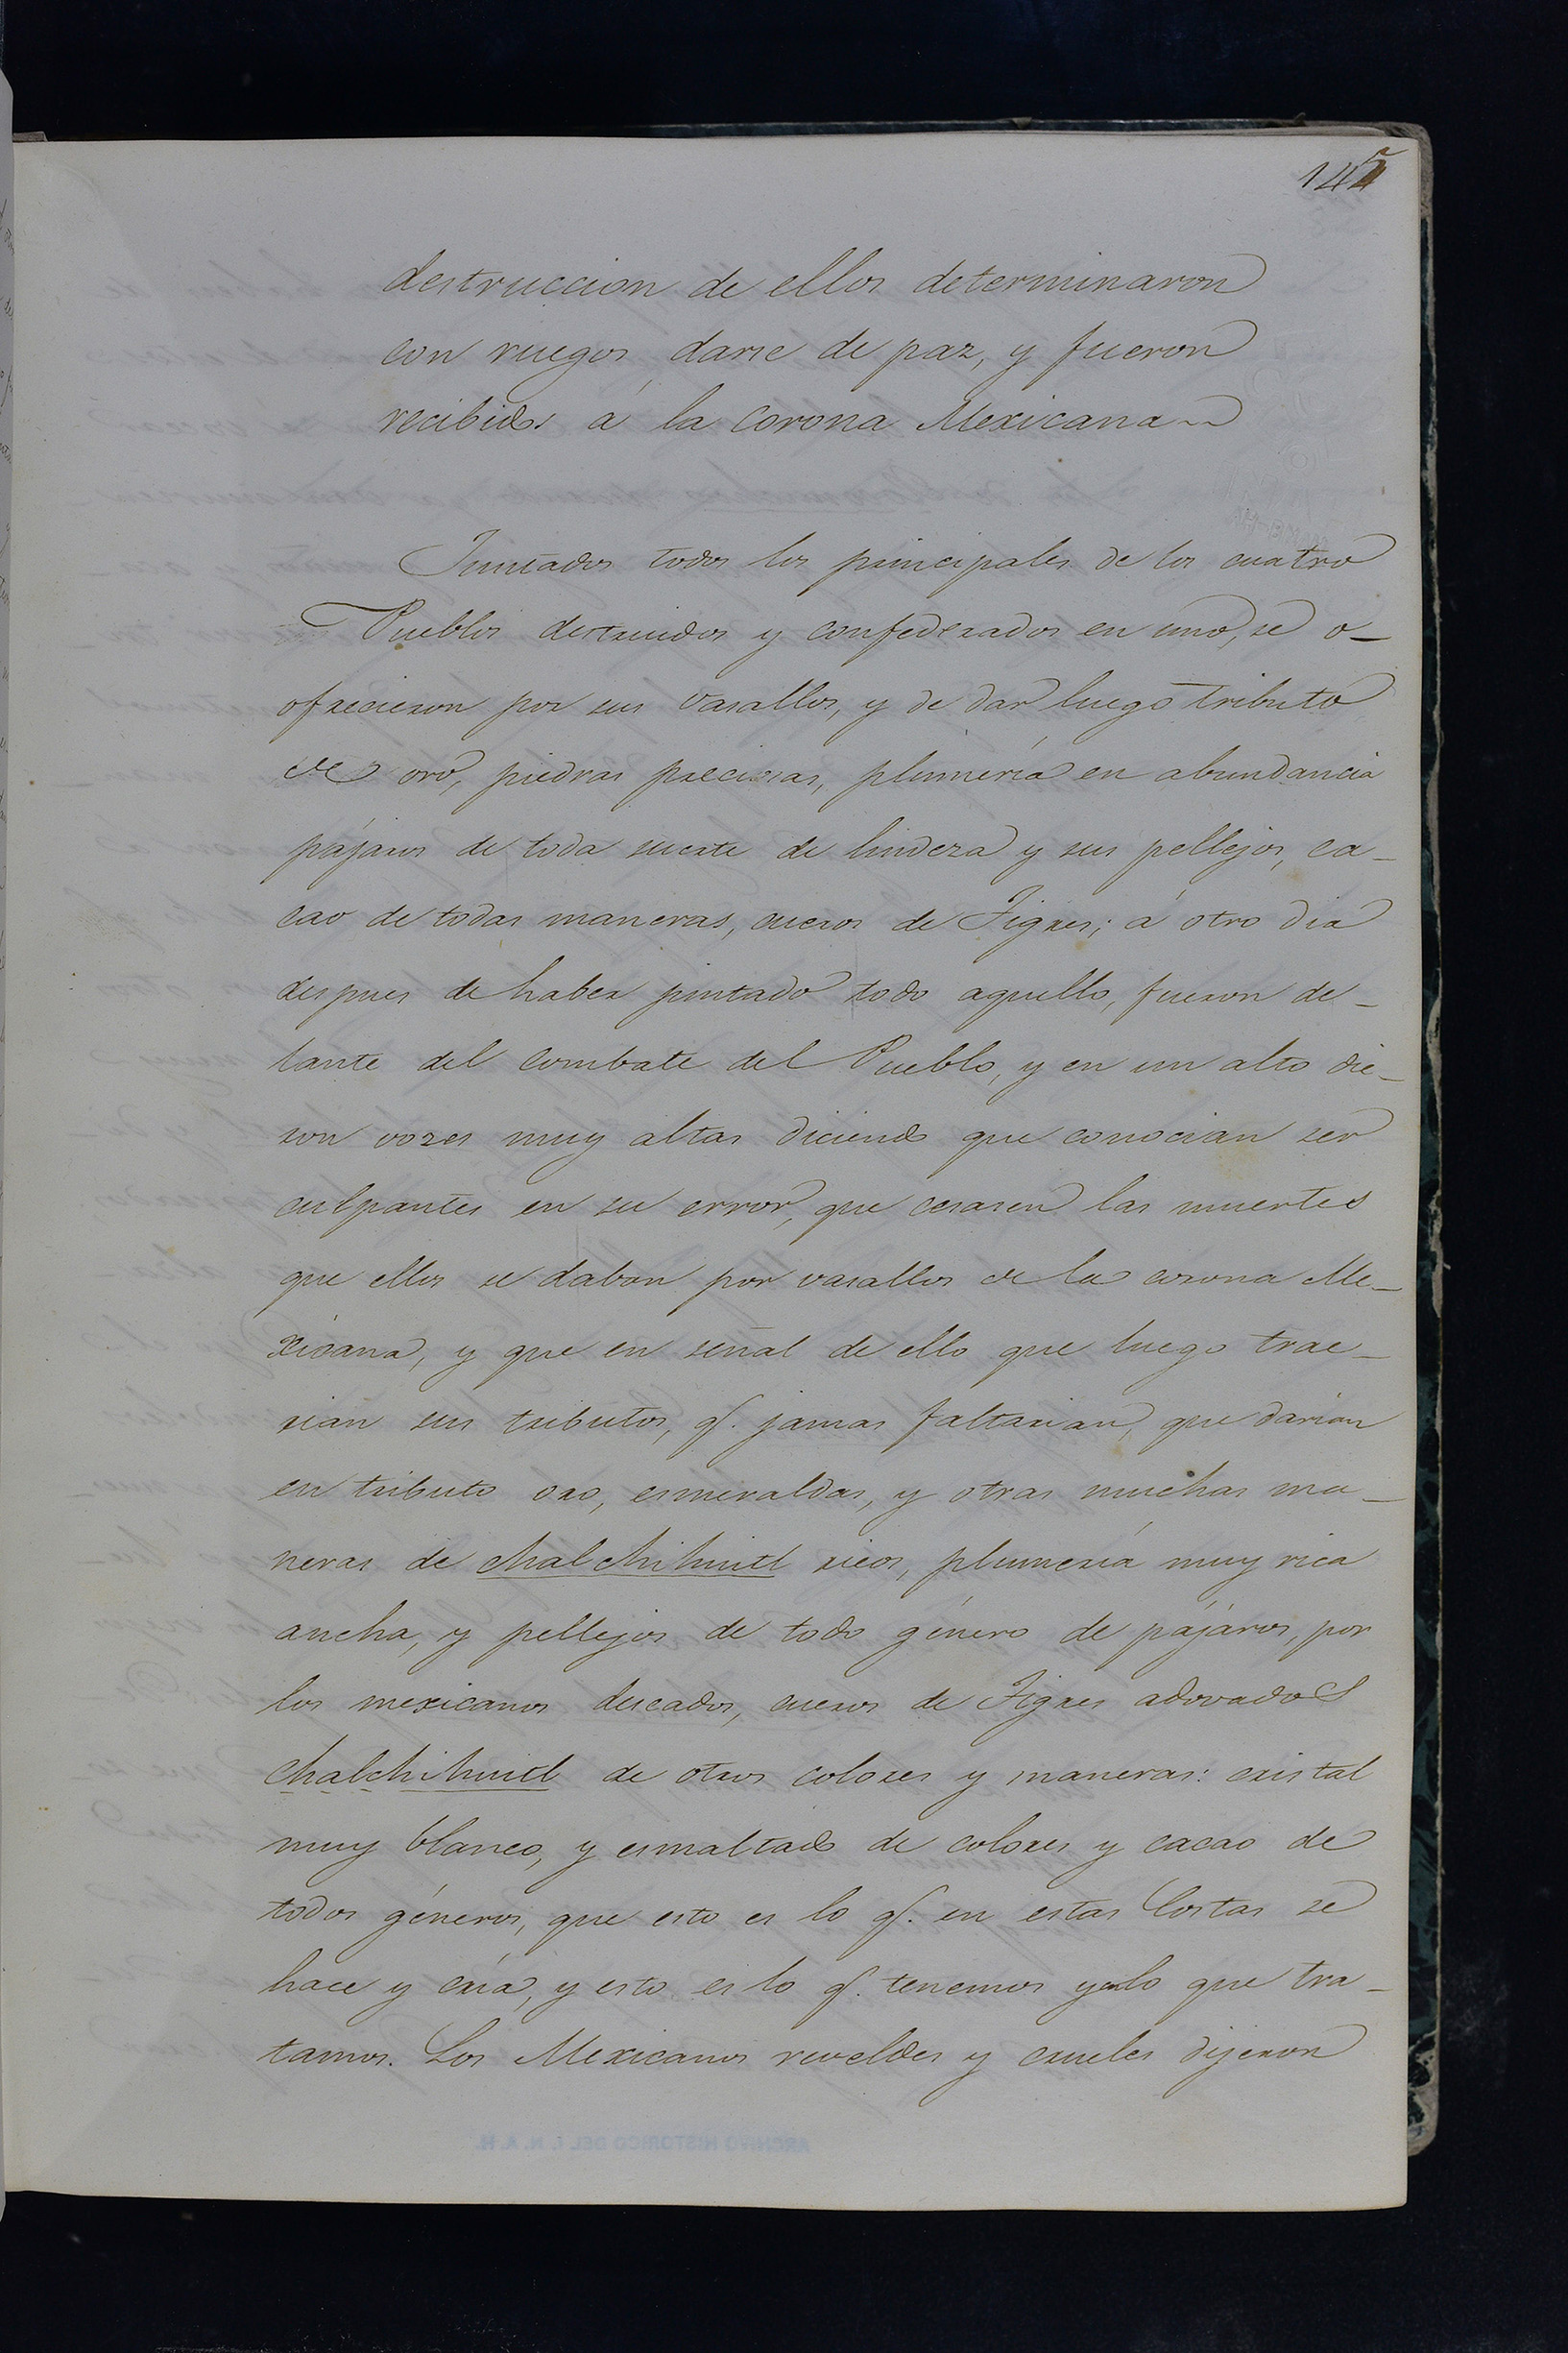 145
destruccion de ellos determinaron
con ruegos darse de paz, y fueron
recibidos á la corona Mexicana
Juntados todos los principales de los cuatro
Pueblos destruidos y confederados en uno, se o-
ofrecieron por sus vasallos, y de dar luego tributo
de oro, piedras preciosas, plumería en abundancia
pájaros de toda suerte de lindeza y sus pellejos, ca-
cao de todas maneras, cueros de Tigres; á otro dia
despues de haber juntado todo aquello, fueron de-
lante del combate del Pueblo, y en un alto die-
ron vozes muy altas diciendo que conocian ser
culpantes en su error, que cesasen las muertes
que ellos se daban por vasallos de la corona Me-
xicana, y que en señal de ello que luego trae-
rian sus tributos, q. jamas faltarian, que darian
en tributo oro, esmeraldas, y otras muchas ma-
neras de chalchihuitl ricos, plumería muy rica
ancha, y pellejos de todo género de pájaros, por
los mexicanos deseados, cueros de Tigres adovados
chalchihuitl de otros colores y maneras: cristal
muy blanco, y esmaltado de colores y cacao de
todos géneros, que esto es lo q. en estas Costas se
hace y cría, y esto es lo q. tenemos y en lo que tra-
tamos. Los Mexicanos reveldes y crueles dijeron
ARCHIVO HISTORICO DEL I. N. A. H.